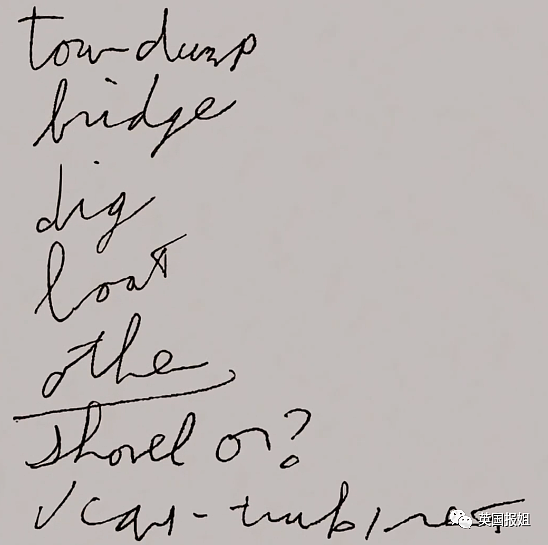 town dump
bridge
dig
boat
other
shovel or?
✓ car - turbines
英国报姐